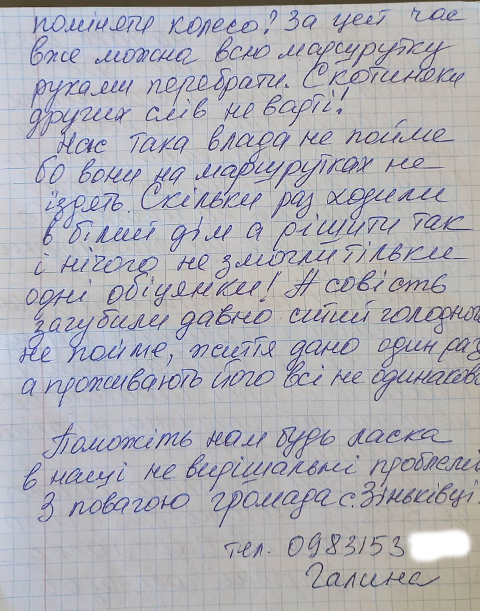 поміняти колесо? За цей час
вже можна всю маршрутку
руками перебрати. Скотиняки
других слів не варті!
Нас така влада не пойме
бо вони на маршрутках не
їздять. Скільки раз ходили
в білий дім а рішити так
і нічого не змогли тільки
одні обіцянки! А совість
загубили давно ситий голодного
не пойме, життя дано один раз
а проживають його всі не одинаково
Поможіть нам будь ласка
в нашій не вирішальні проблемі
З повагою громада с. Зіньківці.
тел. 0983153
Галина